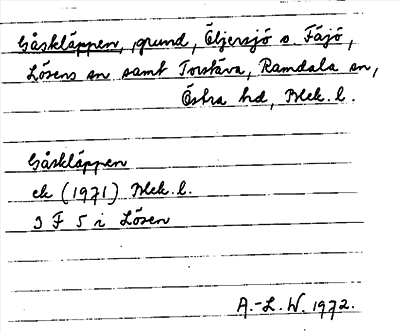 Gåskläppen, grund, Öljersjö o. Fäjö,
Lösens sn samt Torstäva, Ramdala sn,
Östra hd, Blek. l.
Gåskläppen
ek (1971) Blek. l.
3 F 5 i Lösen
A.-L. W. 1972.